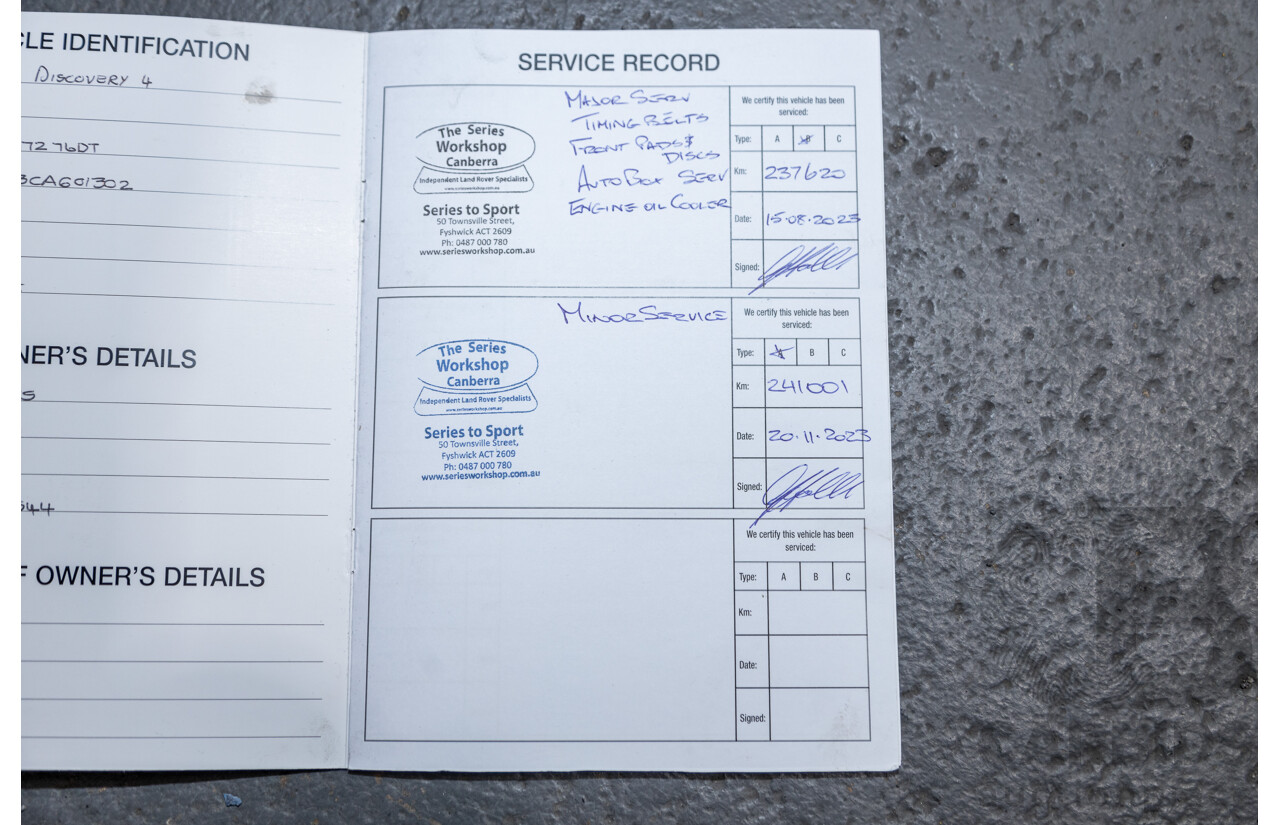 CLE IDENTIFICATION
DISCOVERY 4
7276DT
3CA601302
NER'S DETAILS
S
544
F OWNER'S DETAILS
SERVICE RECORD
The Series
Workshop
Canberra
Independent Land Rover Specialists
www.seriesworkshop.com.au
Series to Sport
50 Townsville Street,
Fyshwick ACT 2609
Ph: 0487 000 780
www.seriesworkshop.com.au
MAJOR SERV
TIMING BELTS
FRONT PADS &
DISCS
AUTO BOX SERV
ENGINE OIL COOLER
We certify this vehicle has been
serviced:
Type: A B C
Km: 237620
Date: 15.08.2023
Signed:
The Series
Workshop
Canberra
Independent Land Rover Specialists
www.seriesworkshop.com.au
Series to Sport
50 Townsville Street,
Fyshwick ACT 2609
Ph: 0487 000 780
www.seriesworkshop.com.au
MINOR SERVICE
We certify this vehicle has been
serviced:
Type: A B C
Km: 241001
Date: 20.11.2023
Signed:
We certify this vehicle has been
serviced:
Type: A B C
Km:
Date:
Signed: